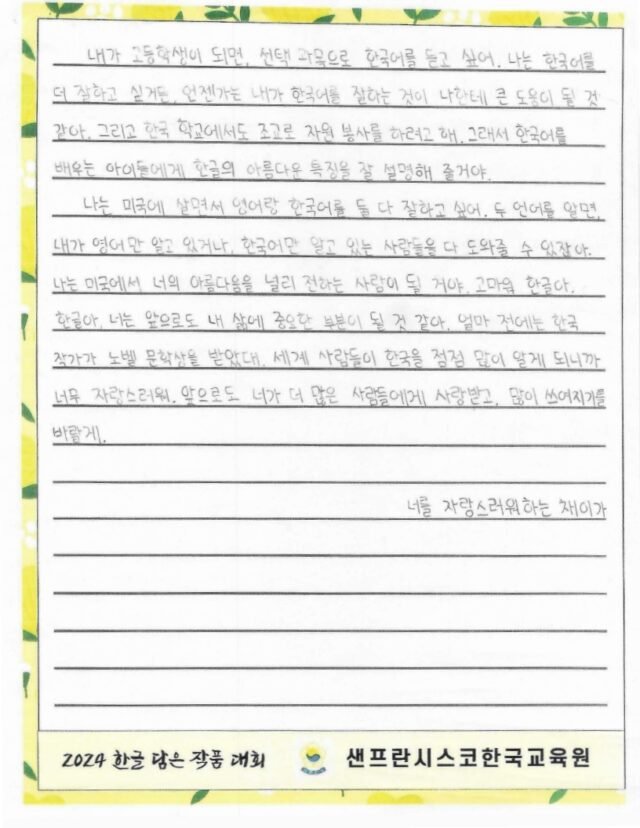 내가 고등학생이 되면, 선택 과목으로 한국어를 듣고 싶어. 나는 한국어를
더 잘하고 싶거든. 언젠가는 내가 한국어를 잘하는 것이 나한테 큰 도움이 될 것
같아. 그리고 한국 학교에서도 조교로 자원 봉사를 하려고 해. 그래서 한국어를
배우는 아이들에게 한글의 아름다운 특징을 잘 설명해 줄거야.
나는 미국에 살면서 영어랑 한국어를 둘 다 잘하고 싶어. 두 언어를 알면,
내가 영어만 알고 있거나, 한국어만 알고 있는 사람들을 다 도와줄 수 있잖아.
나는 미국에서 너의 아름다움을 널리 전하는 사람이 될 거야. 고마워 한글아.
한글아, 너는 앞으로도 내 삶에 중요한 부분이 될 것 같아. 얼마 전에는 한국
작가가 노벨 문학상을 받았대. 세계 사람들이 한국을 점점 많이 알게 되니까
너무 자랑스러워. 앞으로도 너가 더 많은 사람들에게 사랑받고, 많이 쓰여지기를
바랄게.
너를 자랑스러워하는 채이가
2024 한글 담은 작품 대회
샌프란시스코한국교육원